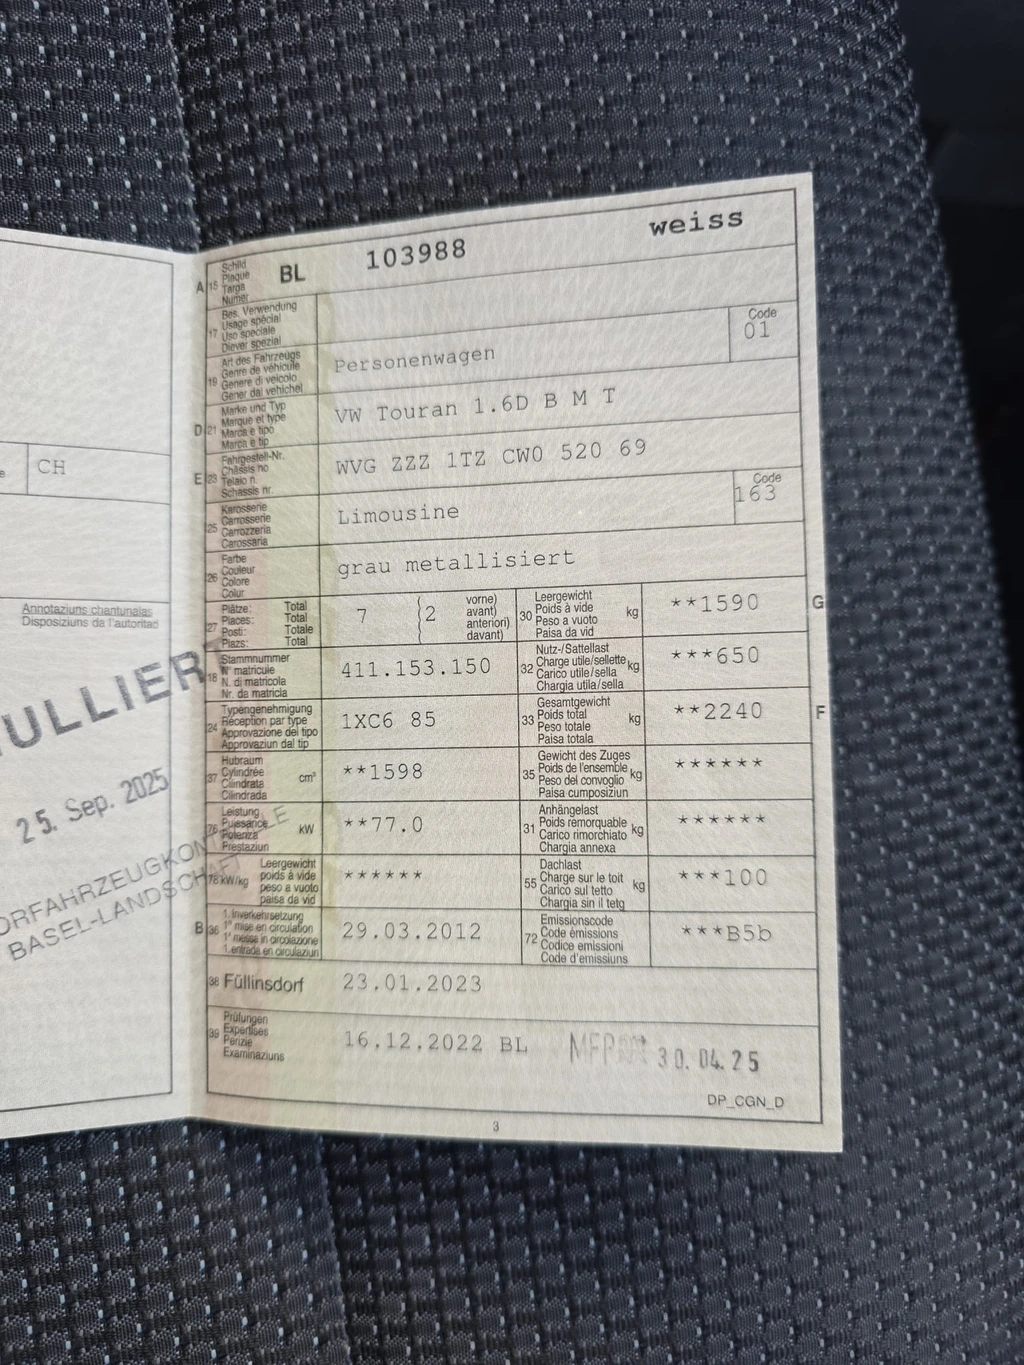 CH
Annotaziuns chantunalas
Disposiziuns da l'autoritad
ULLIER
25. Sep. 2025
ORFAHRZEUGKON
BASEL-LANDSCHAFT
A 15 Schild
Plaque
Targa
Numer
BL 103988 weiss
17 Bes. Verwendung
Usage spécial
Uso speciale
Diever spezial
19 Art des Fahrzeugs
Genre de véhicule
Genere di veicolo
Gener dal vehichel
Personenwagen
Code
01
D 21 Marke und Typ
Marque et type
Marca e tipo
Marca e tip
VW Touran 1.6D B M T
E 23 Fahrgestell-Nr.
Châssis no
Telaio n.
Schassis nr.
WVG ZZZ 1TZ CW0 520 69
25 Karosserie
Carrosserie
Carrozzeria
Carossaria
Limousine
Code
163
26 Farbe
Couleur
Colore
Colur
grau metallisiert
27 Plätze: Total
Places: Total
Posti: Totale
Plazs: Total
7 (2 vorne)
avant)
anteriori)
davant)
30 Leergewicht
Poids à vide
Peso a vuoto
Paisa da vid
kg **1590 G
18 Stammnummer
N° matricule
N. di matricola
Nr. da matricla
411.153.150
32 Nutz-/Sattellast
Charge utile/sellette
Carico utile/sella
Chargia utila/sella
kg ***650
24 Typengenehmigung
Réception par type
Approvazione del tipo
Approvaziun dal tip
1XC6 85
33 Gesamtgewicht
Poids total
Peso totale
Paisa totala
kg **2240 F
37 Hubraum
Cylindrée
Cilindrata
Cilindrada
cm³ **1598
35 Gewicht des Zuges
Poids de l'ensemble
Peso del convoglio
Paisa cumposiziun
kg ******
76 Leistung
Puissance
Potenza
Prestaziun
kW **77.0
31 Anhängelast
Poids remorquable
Carico rimorchiato
Chargia annexa
kg ******
78 kW/kg Leergewicht
poids à vide
peso a vuoto
paisa da vid
******
55 Dachlast
Charge sur le toit
Carico sul tetto
Chargia sin il tetg
kg ***100
B 36 1. Inverkehrsetzung
1re mise en circulation
1a messa in circolazione
1. entrada en circulaziun
29.03.2012
72 Emissionscode
Code émissions
Codice emissioni
Code d'emissiuns
***B5b
38 Füllinsdorf 23.01.2023
39 Prüfungen
Expertises
Perizie
Examinaziuns
16.12.2022 BL 30.04.25
DP_CGN_D
3